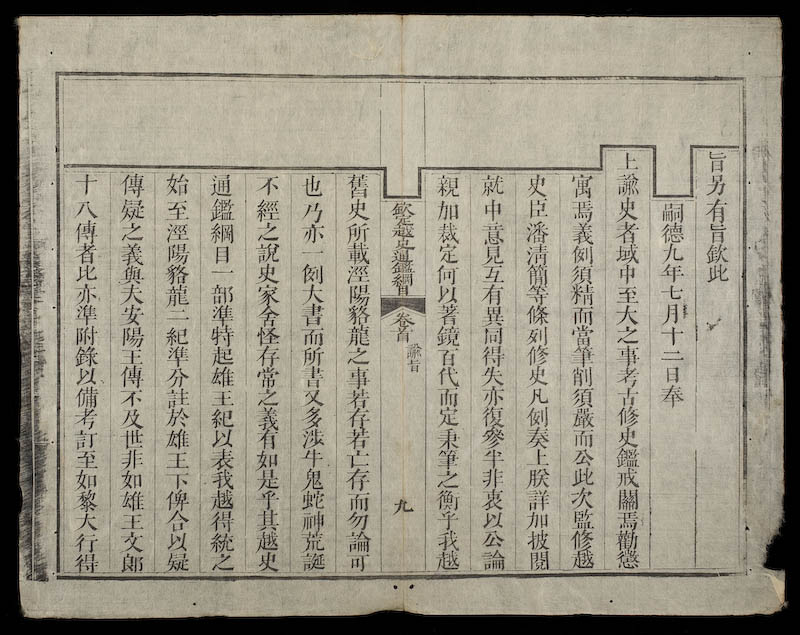 旨另有旨欽此
嗣德九年七月十二日奉
上諭史者域中至大之事考古修史鑑戒關焉勸懲
寓焉義例須精而當筆削須嚴而公此次監修越
史臣潘清簡等條列修史凡例奏上朕詳加披閱
就中意見互有異同得失亦復參半非衷以公論
親加裁定何以著鏡百代而定秉筆之衡乎我越
欽定越史通鑑綱目 卷首 諭旨 九
舊史所載涇陽貉龍之事若存若亡存而勿論可
也乃亦一例大書而所書又多涉牛鬼蛇神荒誕
不經之說史家舍怪存常之義有如是乎其越史
通鑑綱目一部準特起雄王紀以表我越得統之
始至涇陽貉龍二紀準分註於雄王下俾合以疑
傳疑之義與夫安陽王傳不及世非如雄王文郎
十八傳者比亦準附錄以備考訂至如黎大行得